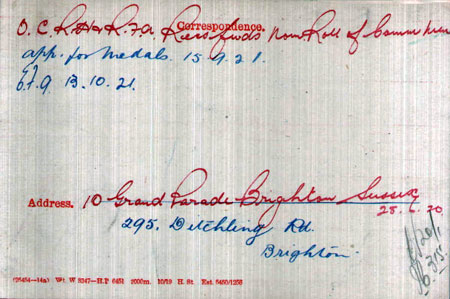 Correspondence.
O. C. R.H & R.F.A. Records fwds Nom Roll of Comm Men
app. for Medals. 15.9.21.
13.10.21.
Address. 10 Grand Parade Brighton Sussex
25.6.20.
295. Ditchling Rd.
Brighton.
Wt. W 5247—H.P 6451 2000m. 10/19 H. St. Est. 5480/1258